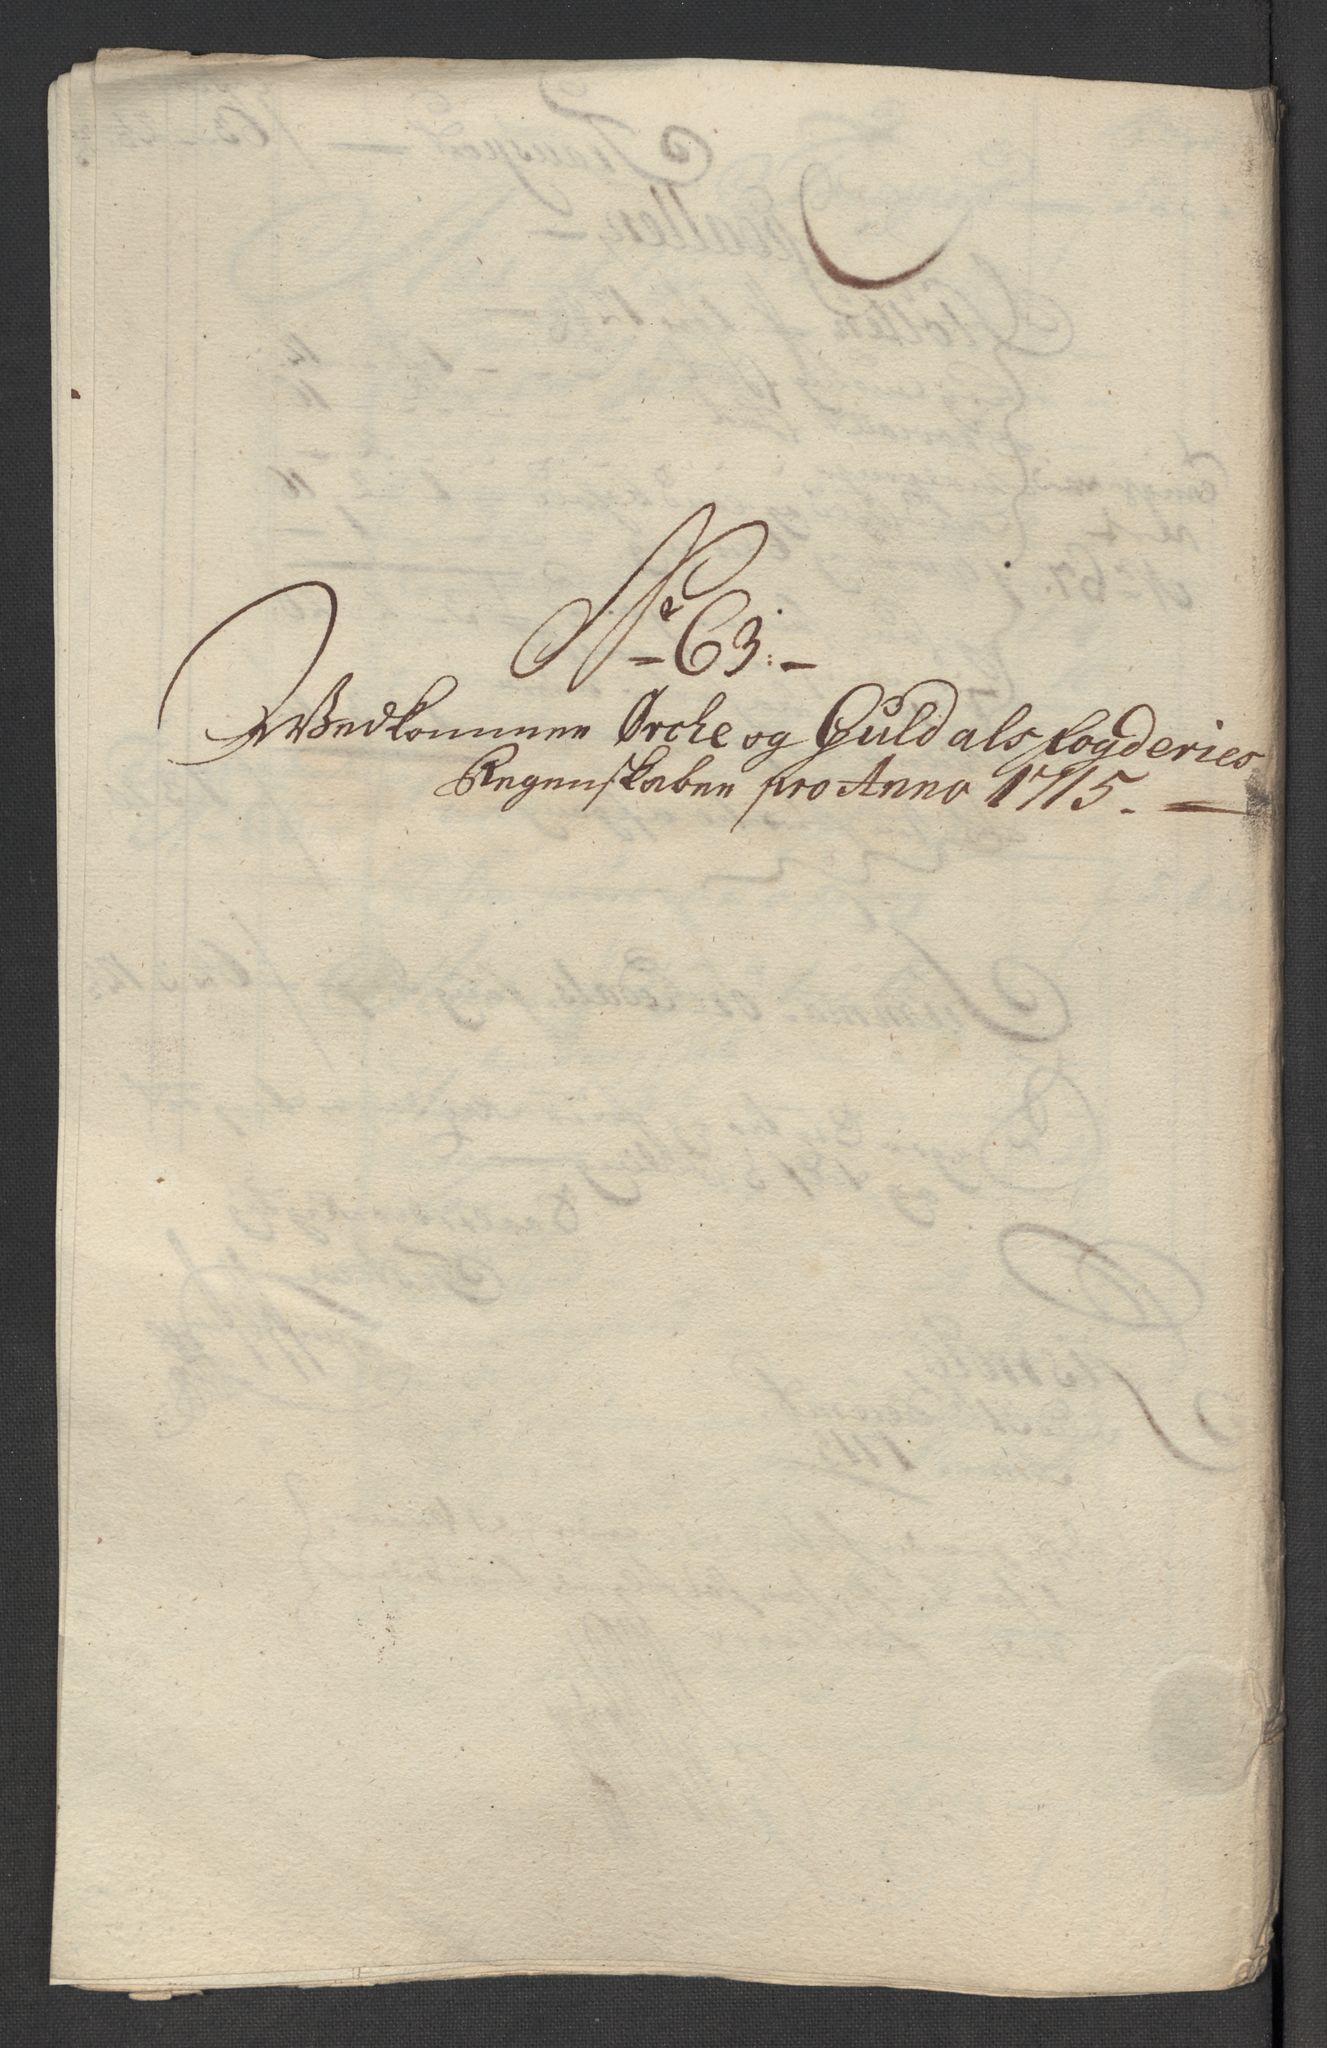 No 63.
Vedkommer Orche og Guldals fogderies
Regenskaber pro Anno 1715.